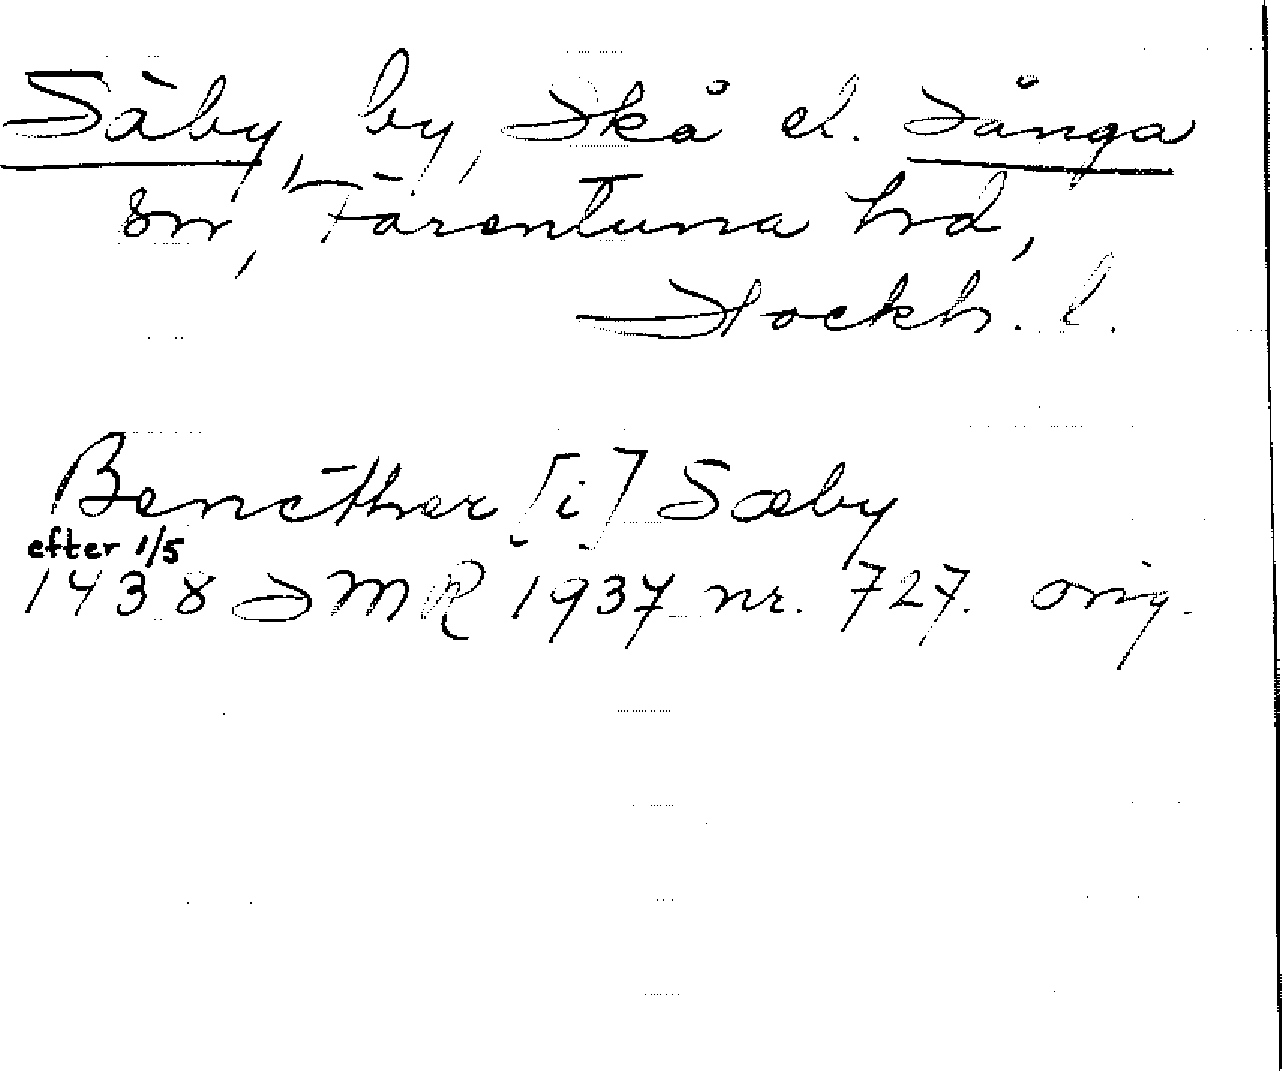 Säby, by, Skå el. Sånga
sn, Färentuna hd,
Stockh. l.
Bencther [i] Sæby
efter 1/5
1438 SMR 1937 nr. 727. orig.